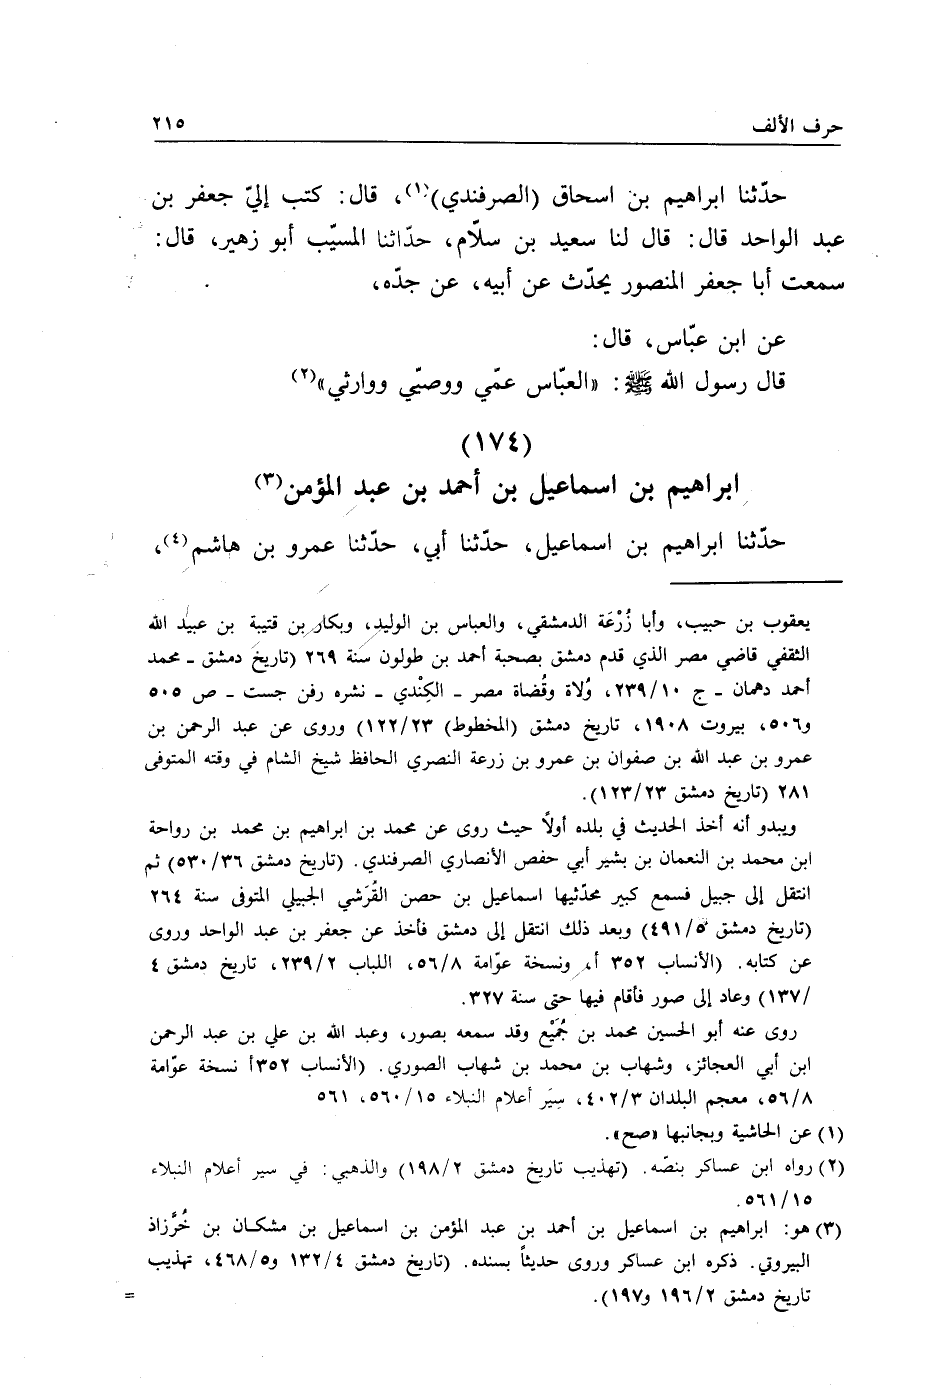 حرف الألف ٢١٥
حدّثنا ابراهيم بن اسحاق (الصرفندي)(١)، قال: كتب إليّ جعفر بن
عبد الواحد قال: قال لنا سعيد بن سلّام، حدّاثنا المسيّب أبو زهير، قال:
سمعت أبا جعفر المنصور يحدّث عن أبيه، عن جدّه،
عن ابن عبّاس، قال:
قال رسول الله ﷺ: «العبّاس عمّي ووصيّي ووارثي»(٢)
(١٧٤)
ابراهيم بن اسماعيل بن أحمد بن عبد المؤمن(٣)
حدّثنا ابراهيم بن اسماعيل، حدّثنا أبي، حدّثنا عمرو بن هاشم(٤)،
يعقوب بن حبيب، وأبا زُرْعَة الدمشقي، والعباس بن الوليد، وبكار بن قتيبة بن عبيد الله
الثقفي قاضي مصر الذي قدم دمشق بصحبة أحمد بن طولون سنة ٢٦٩ (تاريخ دمشق ـ محمد
أحمد دهمان ـ ج ٢٣٩/١٠، وُلاة وقُضاة مصر ـ الكِنْدي ـ نشره رفن جست ـ ص ٥٠٥
و٥٠٦، بيروت ١٩٠٨، تاريخ دمشق (المخطوط) ١٢٢/٢٣) وروى عن عبد الرحمن بن
عمرو بن عبد الله بن صفوان بن عمرو بن زرعة النصري الحافظ شيخ الشام في وقته المتوفى
٢٨١ (تاريخ دمشق ١٢٣/٢٣).
ويبدو أنه أخذ الحديث في بلده أولاً حيث روى عن محمد بن ابراهيم بن محمد بن رواحة
ابن محمد بن النعمان بن بشير أبي حفص الأنصاري الصرفندي. (تاريخ دمشق ٥٣٠/٣٦) ثم
انتقل إلى جبيل فسمع كبير محدّثيها اسماعيل بن حصن القُرَشي الجبيلي المتوفى سنة ٢٦٤
(تاريخ دمشق ٤٩١/٥) وبعد ذلك انتقل إلى دمشق فأخذ عن جعفر بن عبد الواحد وروى
عن كتابه. (الأنساب ٣٥٢ أ، ونسخة عوّامة ٥٦/٨، اللباب ٢٣٩/٢، تاريخ دمشق ٤
/١٣٧) وعاد إلى صور فأقام فيها حتى سنة ٣٢٧.
روى عنه أبو الحسين محمد بن جُمَيْع وقد سمعه بصور، وعبد الله بن علي بن عبد الرحمن
ابن أبي العجائز، وشهاب بن محمد بن شهاب الصوري. (الأنساب ٣٥٢أ نسخة عوّامة
٥٦/٨، معجم البلدان ٤٠٢/٣، سِيَر أعلام النبلاء ٥٦٠/١٥، ٥٦١
(١) عن الحاشية وبجانبها «صح».
(٢) رواه ابن عساكر بنصّه. (تهذيب تاريخ دمشق ١٩٨/٢) والذهبي: في سير أعلام النبلاء
٥٦١/١٥.
(٣) هو: ابراهيم بن اسماعيل بن أحمد بن عبد المؤمن بن اسماعيل بن مشكان بن خُرَّزاذ
البيروتي. ذكره ابن عساكر وروى حديثاً بسنده. (تاريخ دمشق ١٣٢/٤ و٤٦٨/٥، تهذيب
تاريخ دمشق ١٩٦/٢ و١٩٧). =